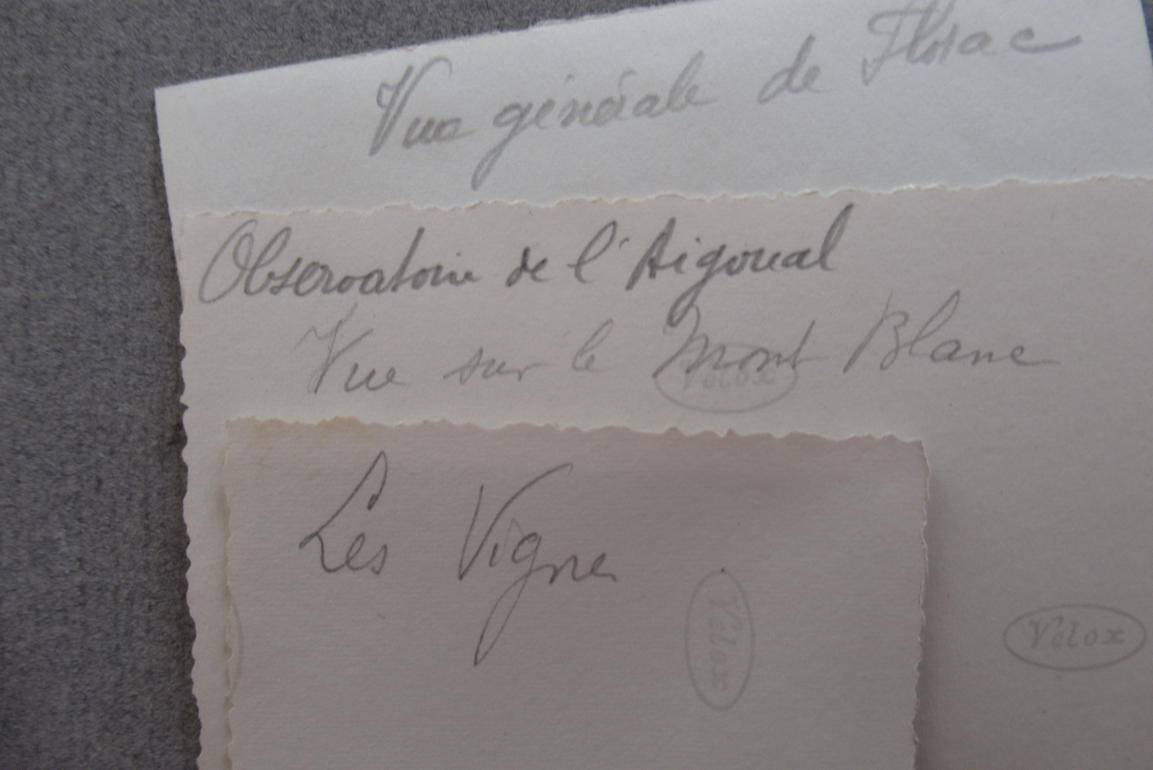 Vue générale de Florac
Observatoire de l'Aigoual
Vue sur le Mont Blanc
Velox
Les Vignes
Velox
Velox